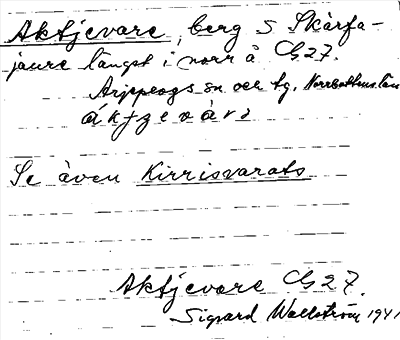 Aktjevare, berg S Skärfa-
jaure längst i norr å G27.
Arjeplogs sn och tg, Norrbottens län
ákȷ̌evàrᵊ
Se även Kirrisvarats
Aktjevare G27.
Sigvard Wallström 1941